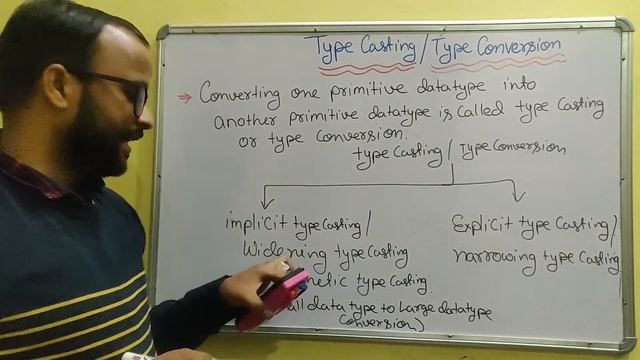 Type Casting/Type Conversion
⇒ Converting one primitive datatype into
another primitive datatype is called type Casting
or type Conversion.
type Casting/Type Conversion
implicit type Casting/
Widening type Casting
Explicit type Casting/
narrowing type Casting
netic type Casting.
all data type to Large datatype
Conversion)